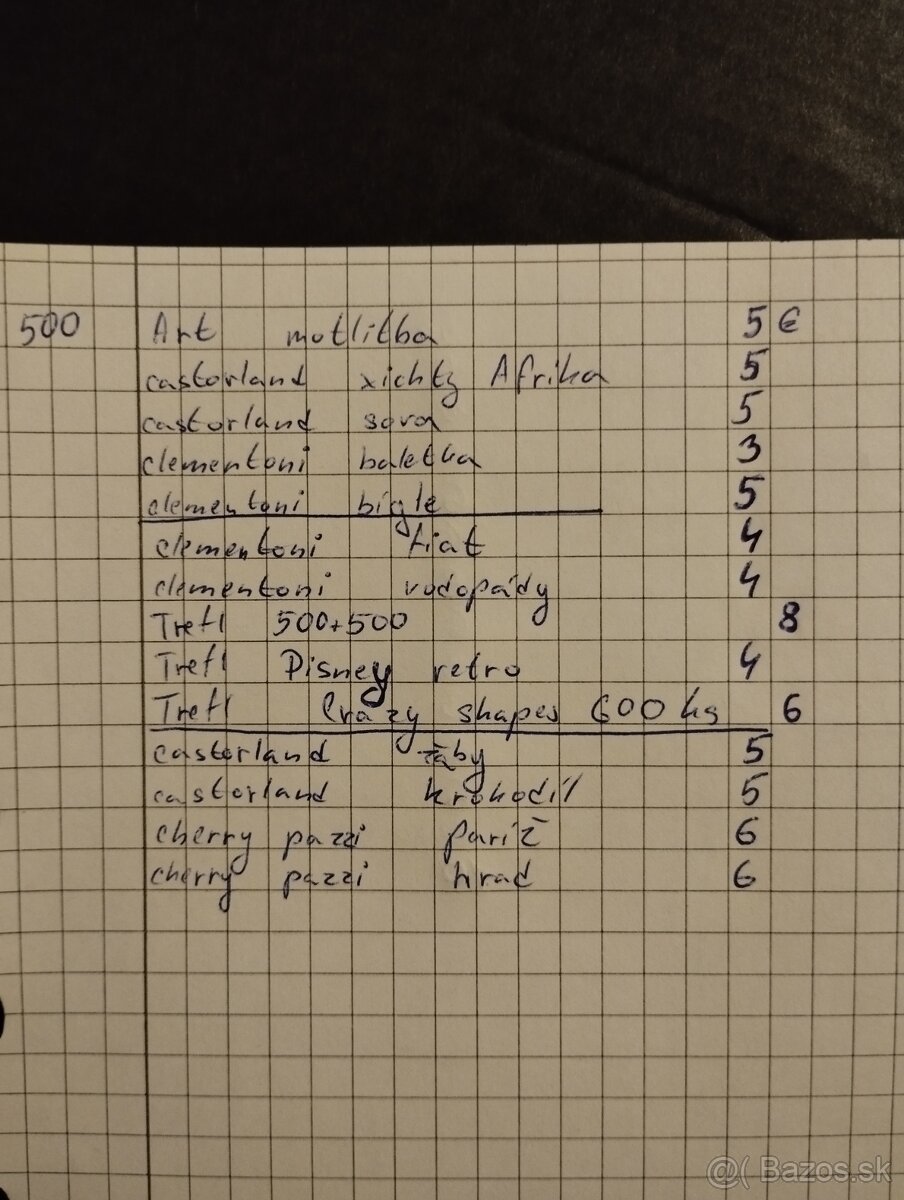 500 Art motlitba 5 €
castorland xichty Afrika 5
castorland sova 5
clementoni baletka 3
clementoni bígle 5
clementoni fiat 4
clementoni vodopády 4
Trefl 500+500 8
Trefl Disney retro 4
Trefl Crazy shapes 600 ks 6
castorland žaby 5
castorland krokodíl 5
cherry pazzi Paríž 6
cherry pazzi hrad 6
@( Bazos.sk